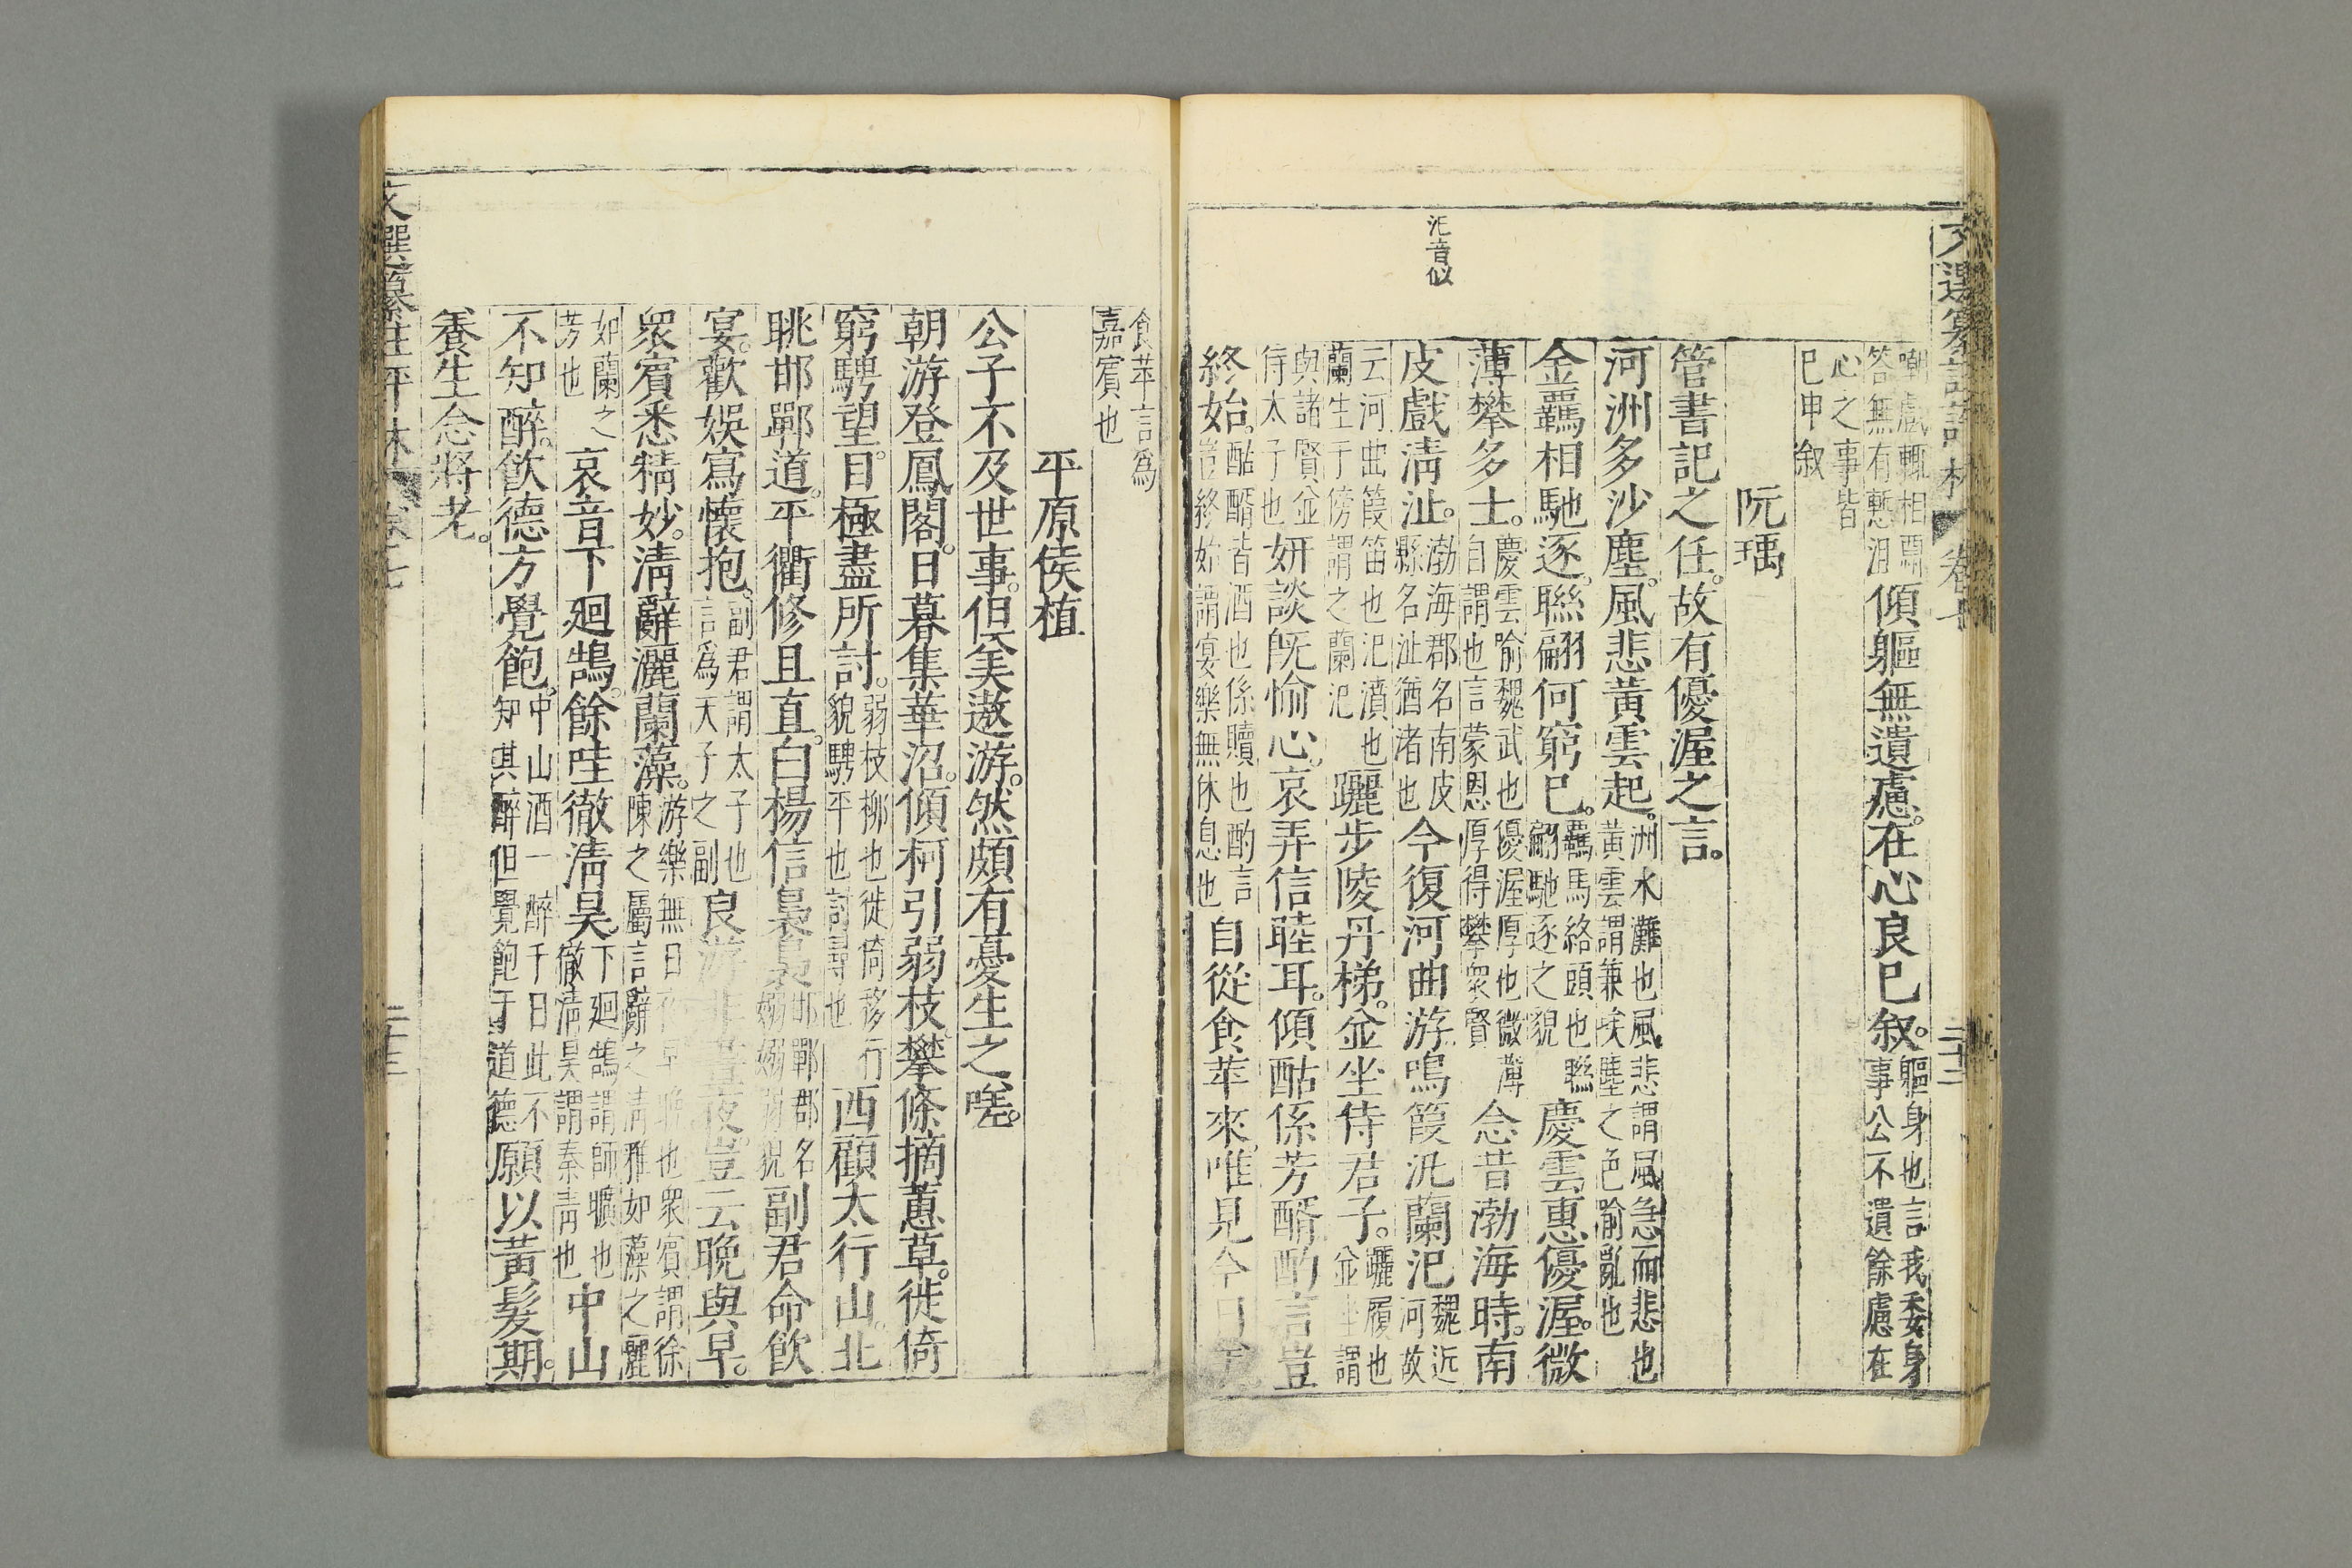 嘲戲輒相酬
答無有慙沮傾軀無遺慮在心良已叙軀身也言我委身
事公不遺餘慮在
心之事皆
已申叙
阮瑀
管書記之任故有優渥之言
河洲多沙塵風悲黃雲起洲水灘也風悲謂風急而悲也
黃雲謂兼埃塵之色喻亂也
金羈相馳逐聯翩何窮已羈馬絡頭也聯
翩馳逐之貌慶雲惠優渥微
薄攀多士慶雲喻魏武也優渥厚也微薄
自謂也言蒙恩厚得攀衆賢念昔渤海時南
皮戲清沚渤海郡名南皮
縣名沚猶渚也今復河曲游鳴葭泛蘭汜魏近河故
云河曲葭笛也汜濆也
蘭生于傍謂之蘭汜躧步陵丹梯並坐侍君子躧履也
並坐謂
與諸賢並
侍太子也妍談既愉心哀弄信睦耳傾酤係芳醑酌言豈
終始酤醑皆酒也係贖也酌言
豈終始謂宴樂無休息也自從食苹來唯見今日
汜音似
食苹言爲
嘉賓也
平原侯植
公子不及世事但美遨游然頗有憂生之嗟
朝游登鳳閣日暮集華沼傾柯引弱枝攀條摘蕙草徙倚
窮騁望目極盡所討弱枝柳也徙倚移行
貌騁平也討尋也西顧太行山北
眺邯鄲道平衢修且直白楊信裊裊邯鄲郡名
嫋嫋弱貌副君命飲
宴歡娛寫懷抱副君謂太子也
言爲天子之副良游匪晝夜豈云晚與早
衆賓悉精妙清辭灑蘭藻游樂無日夜早晚也衆賓謂徐
陳之屬言辭之清雅如藻之麗
如蘭之
芳也哀音下廻鵠餘哇徹清昊下廻鵠謂師曠也
徹清昊謂秦青也中山
不知醉飲德方覺飽中山酒一醉千日此不
知其醉但覺飽于道德願以黃髮期
養生念將老
文選纂註評林 卷七